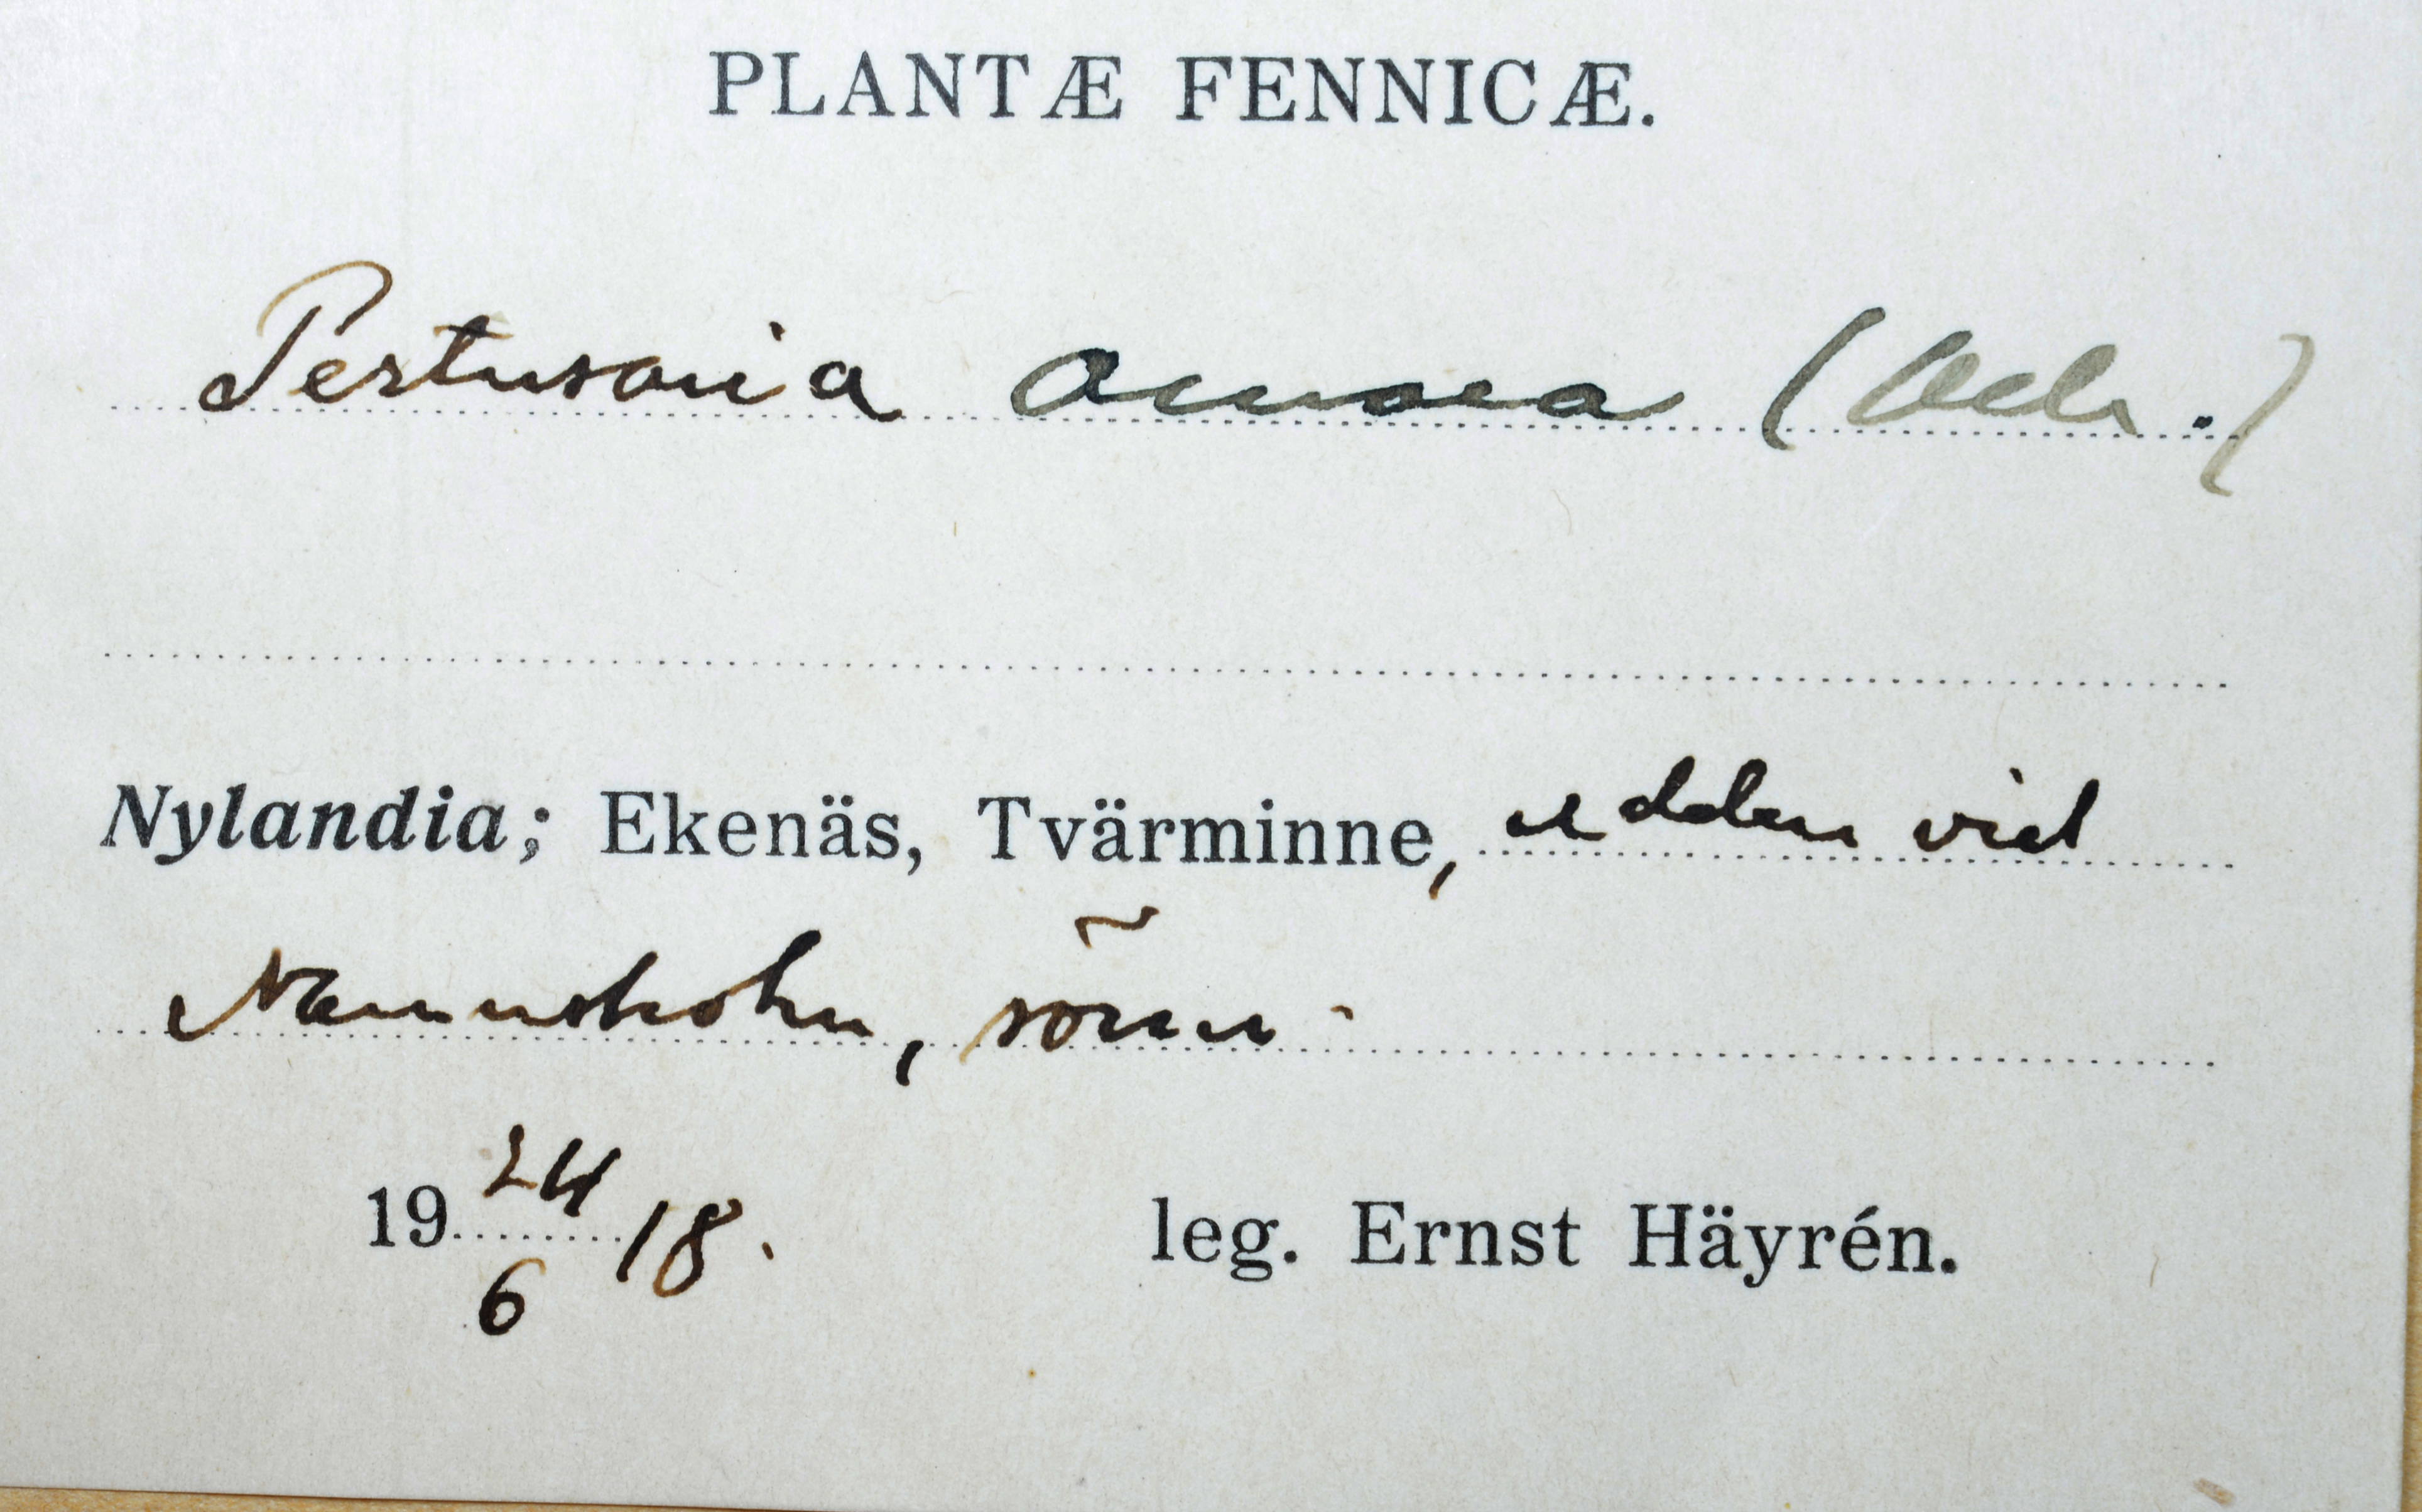 PLANTÆ FENNICÆ.
Pertusaria amara (Ach.)
Nylandia; Ekenäs, Tvärminne, udden vid
19 24/6 18.
leg. Ernst Häyrén.